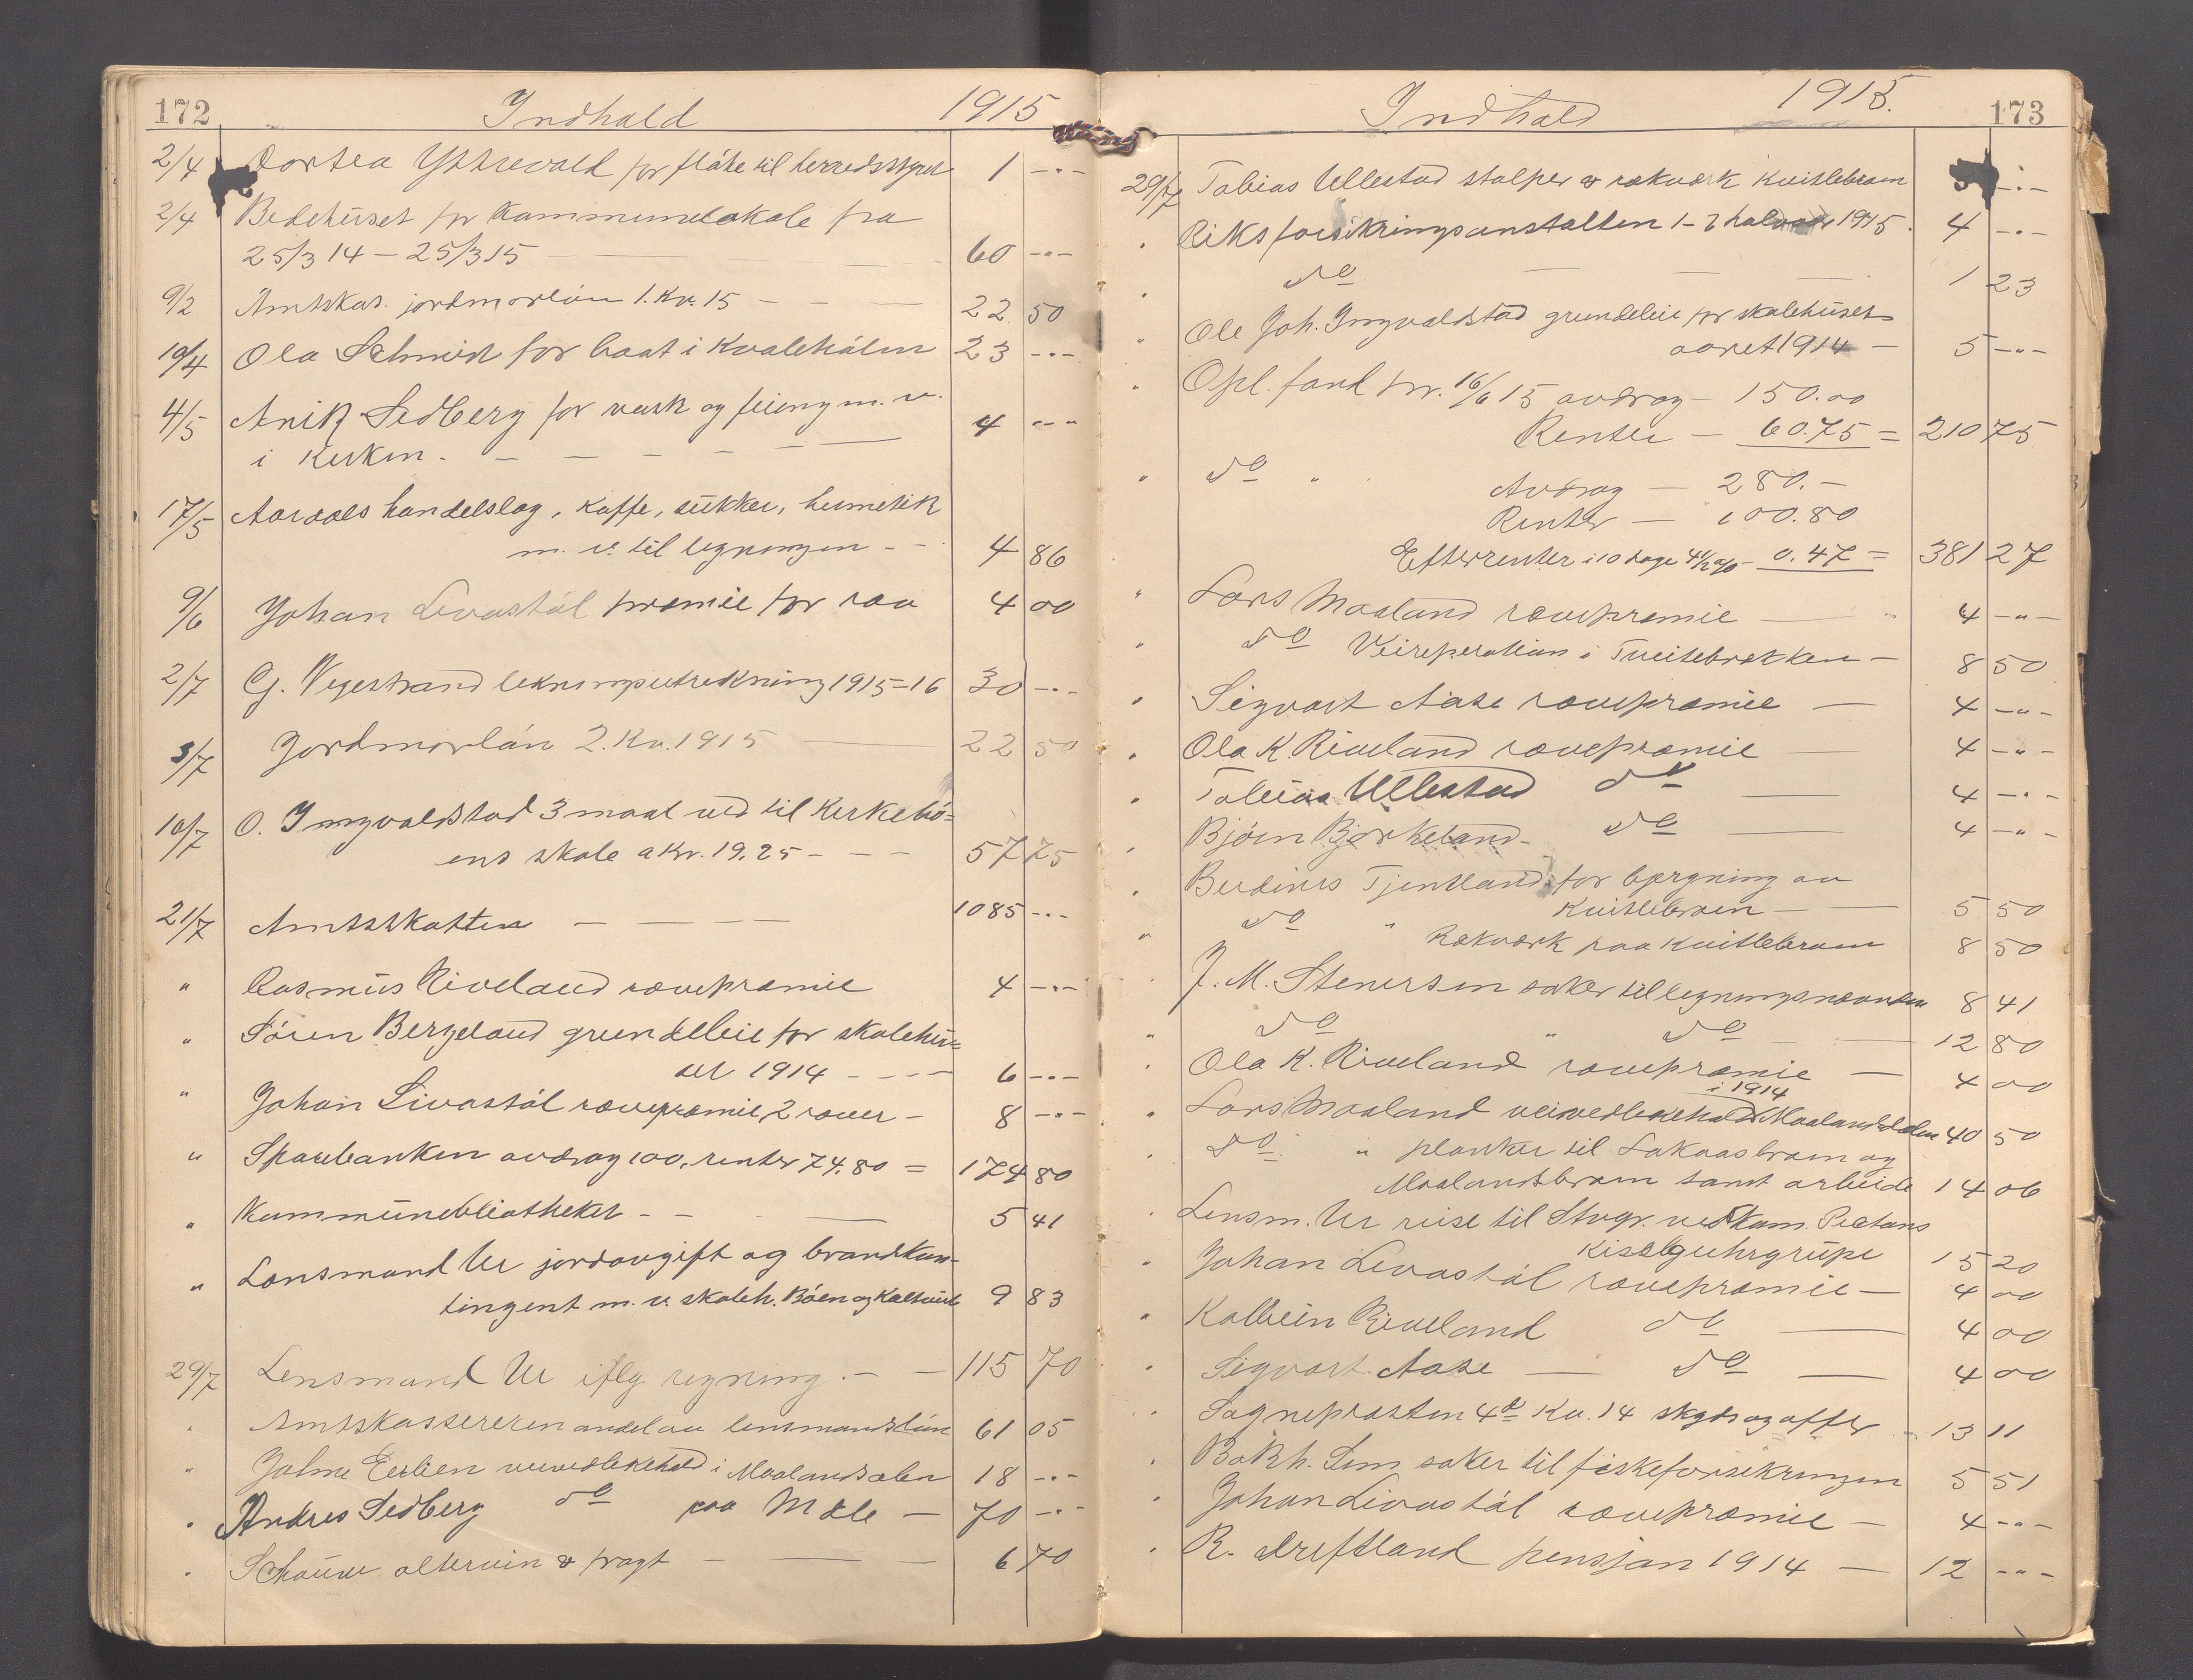 172 Indhald 1915
2/4 Dortea Ythrevold for flåte til herredsstyret 1 -"-
2/4 Bedehuset for kammunelokale fra
25/3 14 - 25/3 15 - 60 -"-
9/2 Amtskas. jordmorlön 1. Kv. 15 - - - 22 50
10/4 Ola Schmidt for baat i Kvaleholm 23 -"-
4/5 Anik Sedberg for vask og feieng m. v. 4 -"-
i Kirken. - - - - -
17/5 Aardals handelslag, Kaffe, sukker, hermetik
m. v. til ligningen - - 4 86
9/6 Johan Livastöl premie for rev 4 00
2/7 G. Vegestrand lekningsutrekning 1915-16 30 -"-
3/7 Jordmorlön 2. Kv. 1915 22 50
10/7 O. Ingvaldstad 3 maal ved til Kirkebö=
ens skole a Kr. 19.25 - - - 57 75
21/7 Amtsskatten - - - 1085 -"-
" Rasmus Riveland rævepræmie 4 -"-
" Sören Bergeland grundleie for skolehu=
set 1914 - - - 6 -"-
" Johan Livastöl rævepræmie, 2 rever - 8 -"-
" Sparebanken avdrag 100, renter 74.80 = 174 80
" Kammunebliotheket - - 5 41
" Lensmand Ur jordavgift og brandkon-
tingent m. v. skoleh. Böen og 9 83
29/7 Lensmand Ur iflg regning. - - 115 70
" Amtskassereren andel av lensmandslön 61 05
" veivedlikehold i Maalandsdalen 18 -"-
" Andres Sedberg do paa Mæle - 70 -"-
" altervin & fragt - 6 70
Indhald 1915. 173
29/7 Tobias Ullestad stolper & rekverk Kvitlebroen -"-
" Riksforsikringsanstalten 1-2 halvaar 1915. 4 -"-
" do - - - 1 23
" Ole Joh. Ingvaldstad grundleie for skolehuset
aaret 1914 - 5 -"-
" Opl. fond pr. 16/6 15 avdrag - 150.00
Renter - 60.75 = 210 75
" do " Avdrag - 280.-
Renter - 100.80
Efterrenter i 10 dage 4 1/2 % - 0.47 = 381 27
" Lars Maaland rævepræmie 4 -"-
" do Veireperation i Tveitebrekken - 8 50
" Sigvart Aase rævepræmie - 4 -"-
" Ola K. Riveland rævepræmie 4 -"-
" Tobias Ullestad do 4 -"-
" Björn Bjørkeland - do 4 -"-
" Berdines Tjentland for bergning av
Kvitlebroen - 5 50
" do " Rekverk paa Kvitlebroen 8 50
" J. M. Stenersen saker til ligningsnævnden 8 41
" do " do 12 80
" Ola K. Riveland rævepræmie - 4 00
i 1914
" Lars Maaland veivedlikehold Maalandsdalen 40 50
" do " planker til Lakaasbroen og
Maalandsbroen samt arbeide 14 06
" Lensm. Ur reise til Stvgr. vedkom. Pedans
Kiselguhrgrupe 15 20
" Johan Livastöl rævepræmie - 4 00
" Kolbein Riveland do 4 00
" Sigvart Aase - do - 4 00
" Sogneprasten 4de Kv. 14 skyds og offer 13 11
" Bokh. Lem saker til fiskeforsikringen 5 51
" Johan Livastöl rævepræmie - 4 -"-
" R. Driftland pensjon 1914 - 12 -"-